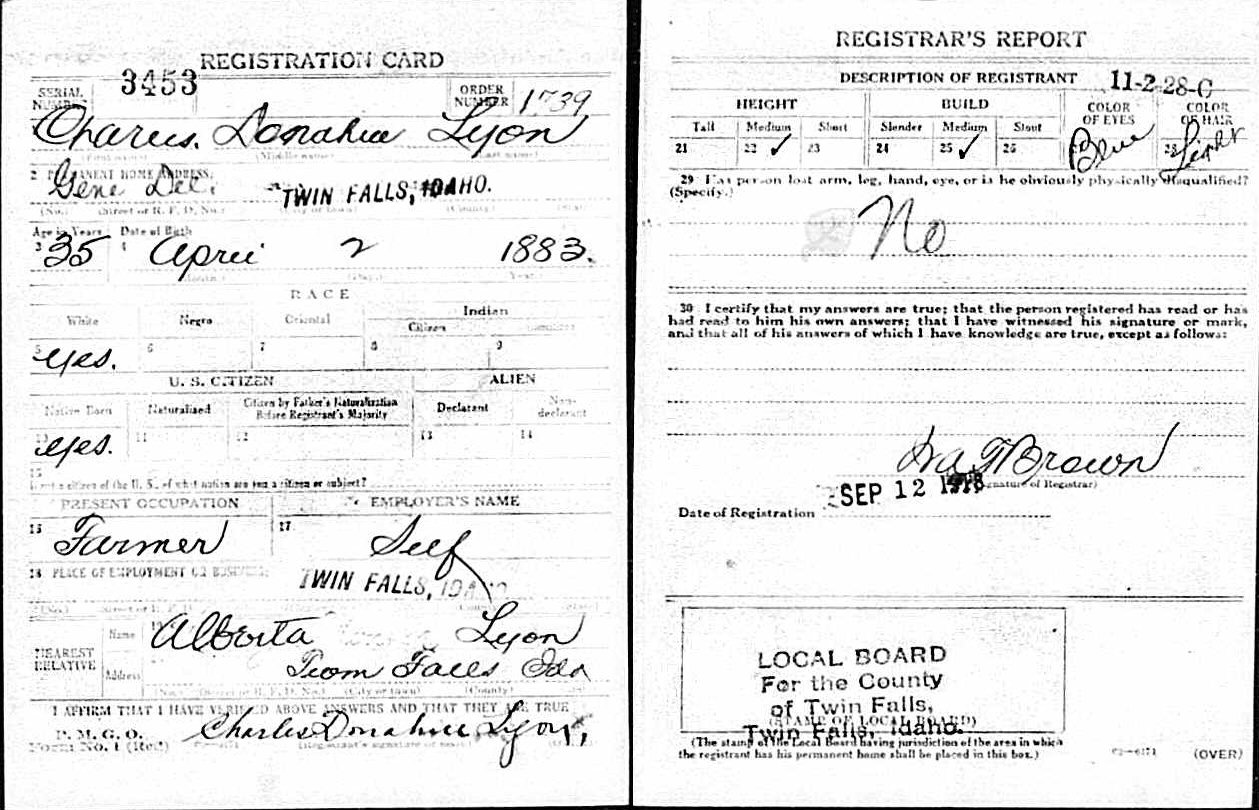 REGISTRATION CARD
SERIAL NUMBER 3453 ORDER NUMBER 1739
Charles. Donahue Lyon
(First name) (Middle name) (Last name)
2 PERMANENT HOME ADDRESS:
Gene Del. TWIN FALLS, IDAHO.
(No.) (Street or R. F. D. No.) (City or town) (County) (State)
Age in Years Date of Birth
3 35 4 April 2 1883.
(Month) (Day) Year
RACE
White Negro Oriental Indian
Citizen Noncitizen
5 Yes. 6 7 8 9
U. S. CITIZEN ALIEN
Native Born Naturalized Citizen by Father's Naturalization Before Registrant's Majority Declarant Non-declarant
10 Yes. 11 12 13 14
15
If not a citizen of the U. S., of what nation are you a citizen or subject?
PRESENT OCCUPATION EMPLOYER'S NAME
16 Farmer 17 Self
18 PLACE OF EMPLOYMENT OR BUSINESS:
TWIN FALLS, IDAHO
(No.) (Street or R. F. D. No.) (County) (State)
NEAREST RELATIVE
Name 19 Alberta Lyon
Address Falls Ida
(No.) (Street or R. F. D. No.) (City or town) (County)
I AFFIRM THAT I HAVE VERIFIED ABOVE ANSWERS AND THAT THEY ARE TRUE
P. M. G. O.
Form No. 1 (Red) Charles Donahue Lyon,
(Registrant's signature or mark)
REGISTRAR'S REPORT
DESCRIPTION OF REGISTRANT 11-2-28-C
HEIGHT BUILD COLOR OF EYES COLOR OF HAIR
Tall Medium Short Slender Medium Stout
21 22 ✓ 23 24 25 ✓ 26 Blue 28 Light
29 Has person lost arm, leg, hand, eye, or is he obviously physically disqualified?
(Specify.)
No
30 I certify that my answers are true; that the person registered has read or has
had read to him his own answers; that I have witnessed his signature or mark,
and that all of his answers of which I have knowledge are true, except as follows:
Brown
(Signature of Registrar)
Date of Registration SEP 12 1918
LOCAL BOARD
For the County
of Twin Falls,
(STAMP OF LOCAL BOARD)
Twin Falls, Idaho.
(The stamp of the Local Board having jurisdiction of the area in which
the registrant has his permanent home shall be placed in this box.)
(OVER)